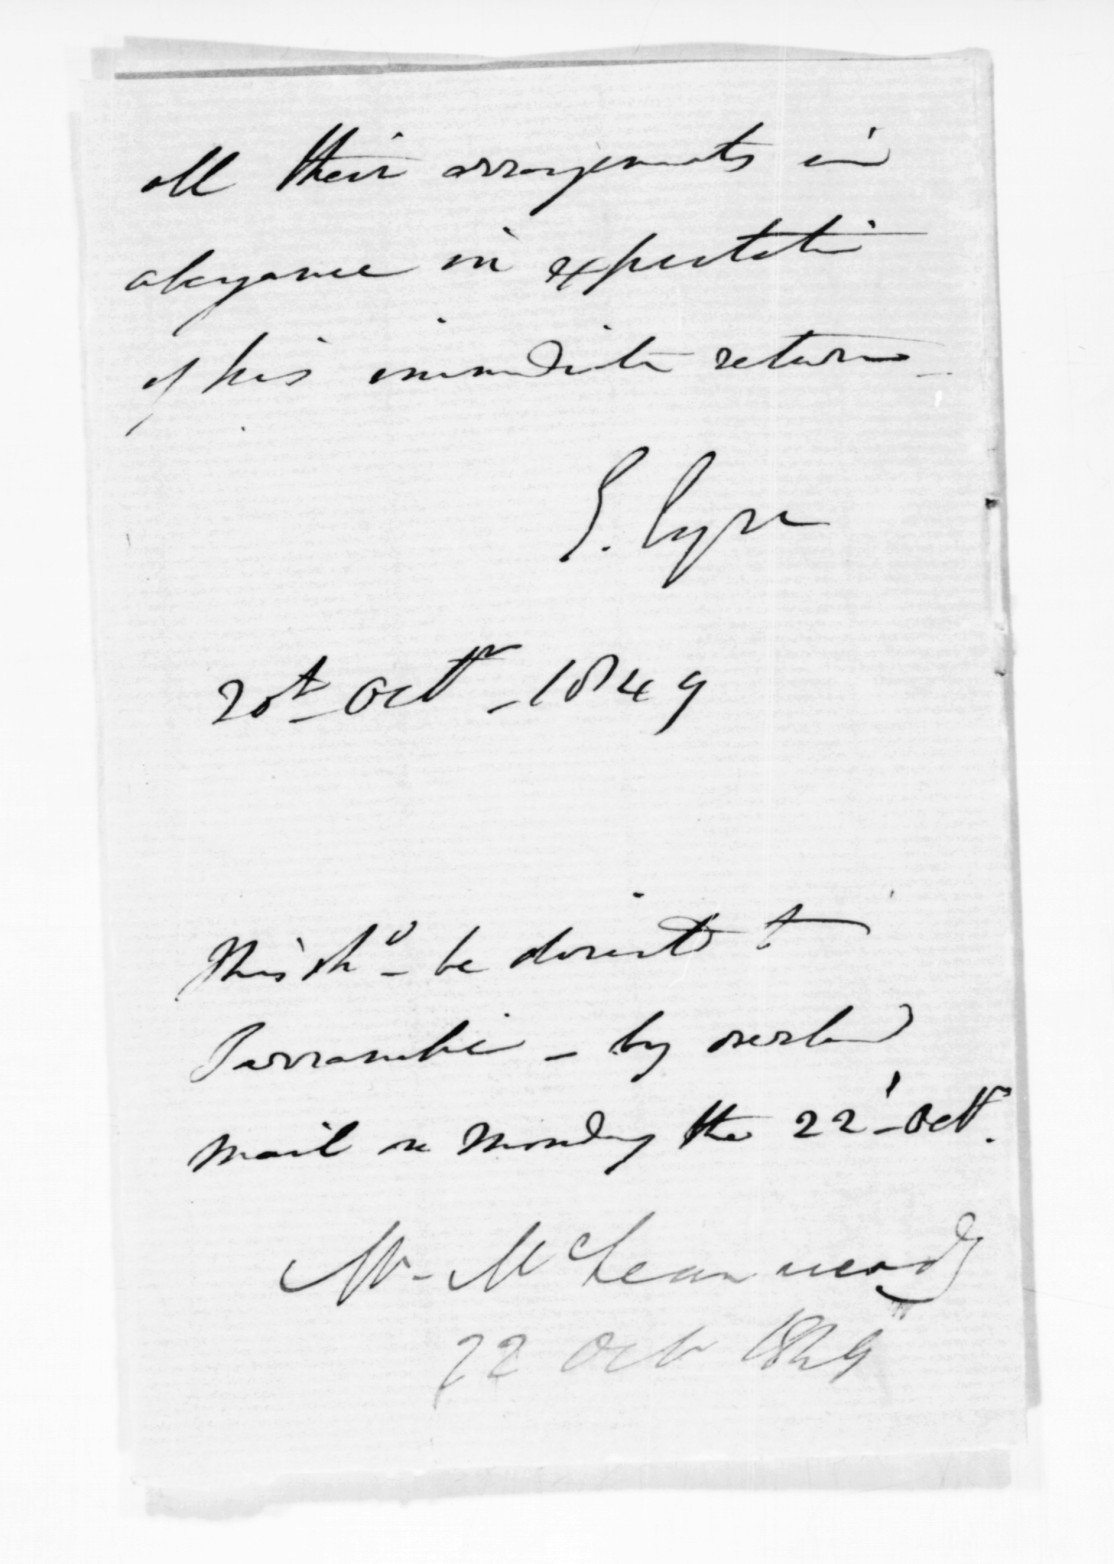 all their arrangements in
abeyance in expectation
of his immediate return_
E. Eyre
20th Octr_ 1849
This shd_ be directed to
Taranaki _ by overland
mail on Monday the 22d_ Octr.
Mr_ McLean
22 Oct 1849